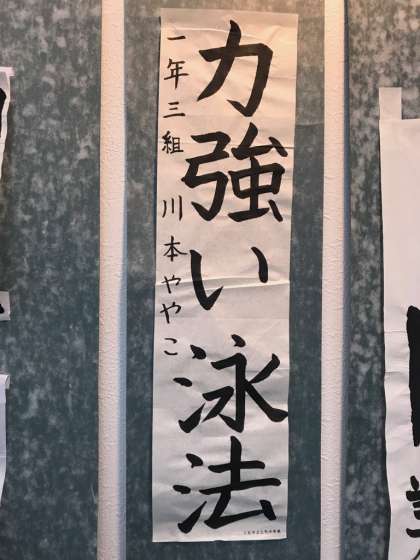 力強い泳法
一年三組 川本ややこ